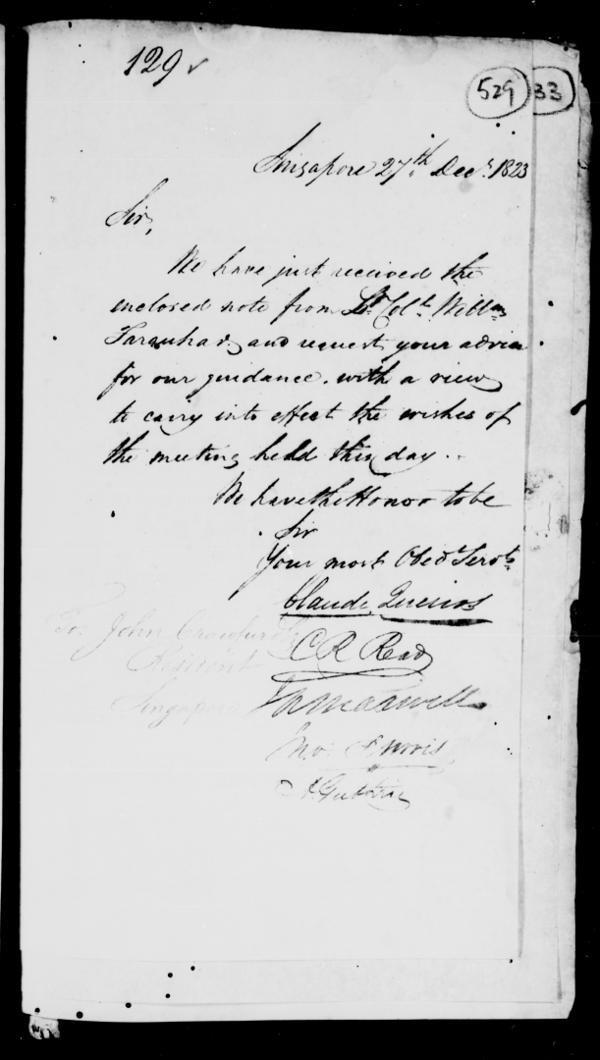 129
529
33
Singapore 27th Decr. 1823
Sir,
We have just received the
enclosed note from Lt. Coll. Willm
Farquhar, and request your advice
for our guidance, with a view
to carry into effect the wishes of
the meeting held this day.
We have the Honor to be
Sir
Your most Obedt Servts
Claude Queiros
To, John Crawfurd
C R Read
Resident
Singapore
Maxwell
Jno. Morris
A. Guthrie